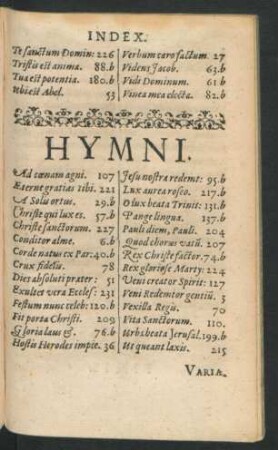 INDEX.
Te sanctum Domin: 226
Tristis est anima. 88.b
Tua est potentia. 180.b
Ubi est Abel. 55
Verbum caro factum. 27
Videns Jacob. 63.b
Vidi Dominum. 61 b
Vinea mea electa. 82.b
HYMNI.
Ad cœnam agni. 107
Æterne gratias tibi. 221
A Solis ortus. 29.b
Christe qui lux es. 57.b
Christe sanctorum. 227
Conditor alme. 6.b
Corde natus ex Par: 40.b
Crux fidelis: 78
Dies absoluti prater: 51
Exultet vera Eccles: 231
Festum nunc celeb: 120.b
Fit porta Christi. 209
Gloria laus & . 76.b
Hostis Herodes impie. 36
Jesu nostra redemt: 95.b
Lux aurea rosco. 217.b
O lux beata Trinit: 131.b
Pange lingua. 137.b
Pauli diem, Pauli. 204
Quod chorus vatũ. 207
Rex Christe factor. 74.b
Rex gloriose Marty: 224
Veni creator Spirit: 127
Veni Redemtor gentiũ. 3
Vexilla Regis. 70
Vita Sanctorum. 110.
Urbs beata Jerusal. 199.b
Ut queant laxis. 215
VARIA.